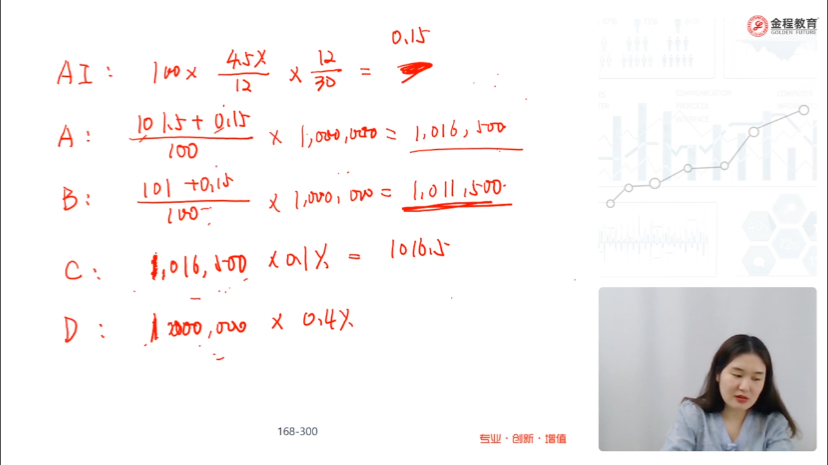 金程教育
GOLDEN FUTURE
AI: 100 × 4.5% / 12 × 12 / 30 = 0.15
A: 101.5 + 0.15 / 100 × 1,000,000 = 1,016,500
B: 101 + 0.15 / 100 × 1,000,000 = 1,011,500
C: 1,016,500 × 0.1% = 1016.5
D: 1000,000 × 0.4%
168-300
专业·创新·增值